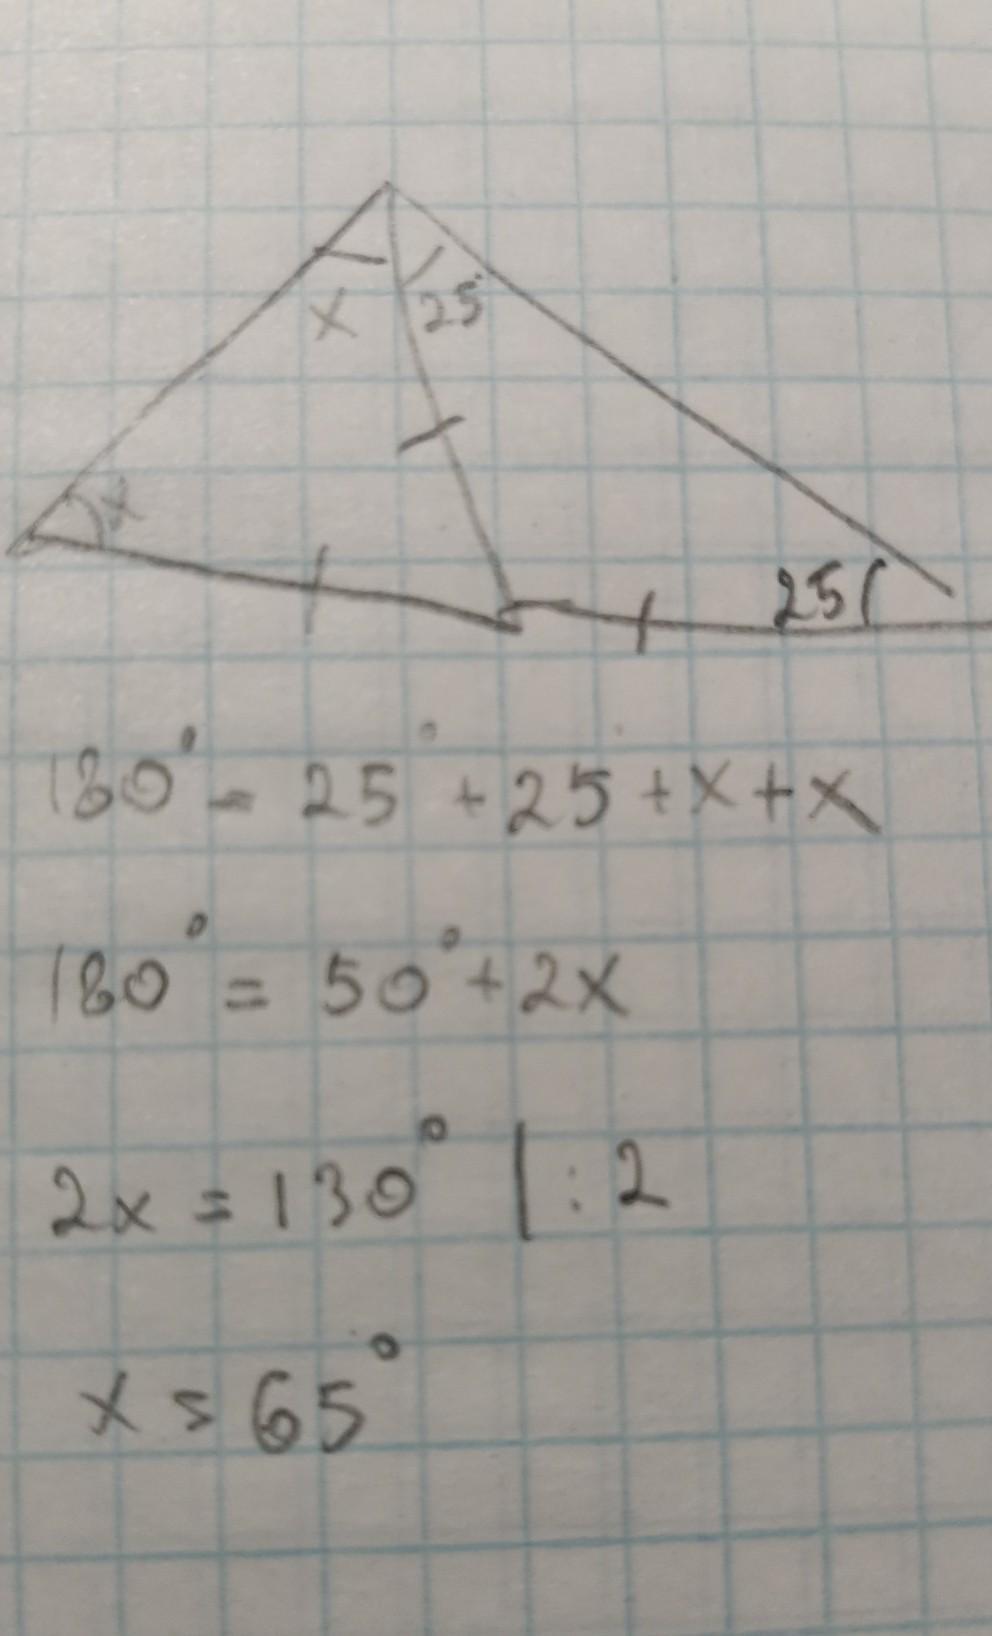 x 25°
x
25
180° = 25° + 25 + x + x
180° = 50° + 2x
2x = 130° | : 2
x = 65°